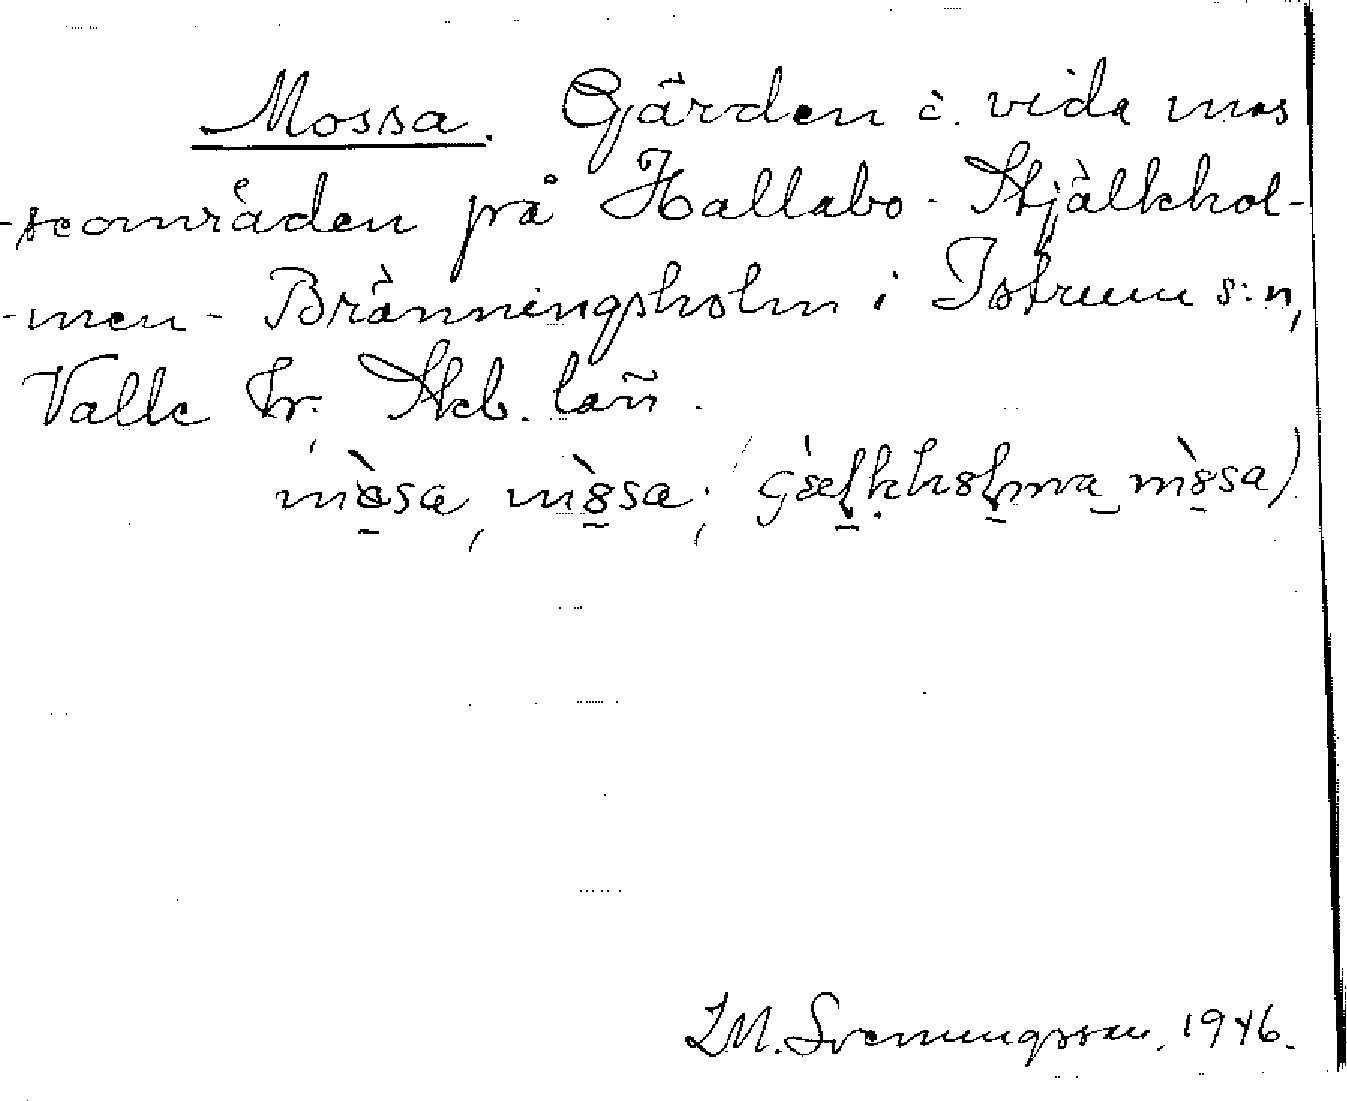 Mossa. Gärden å vida mos
-seområden på Hallabo - Stjälkhol-
-men - Bränningsholm i Istrum s:n,
Valle hr. Skb. län.
mò̠sa, mò̠sa;
L M. Svenungsson, 1946.